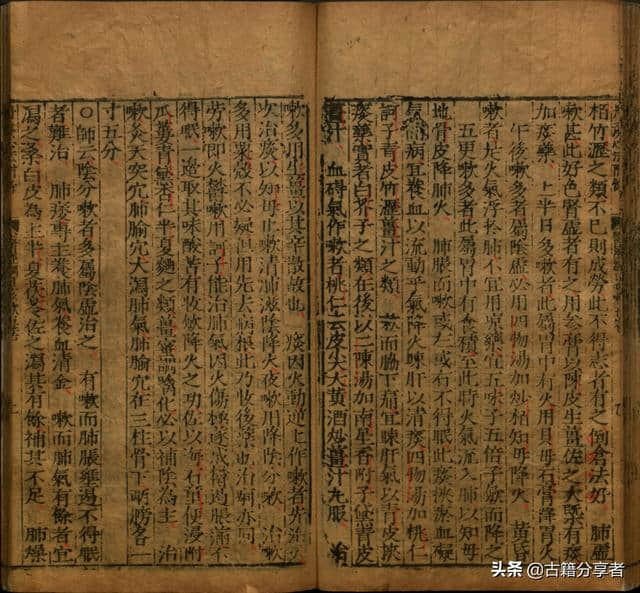 栢竹瀝之類不已則成勞此不得志者有之倒倉法好 肺虛
嗽甚此好色腎虛者有之用參膏以陳皮生薑佐之大槩有痰
加痰藥 上半日多嗽者此屬胃中有火用貝母石膏降胃火
午後嗽多者屬陰虛必用四物湯加炒栢知母降火 黃昏
嗽者是火氣浮於肺不宜用凉藥宜五味子五倍子歛而降之
五更嗽多者此胃中有食積至此時火氣流入肺以知母
地骨皮降肺火 肺脹而嗽或左或右不得眠此痰挾瘀血礙
氣而病宜養血以流動乎氣降火疎肝以清痰四物湯加桃仁
訶子青皮竹瀝薑汁之類 嗽而脇下痛宜疎肝氣以青皮挾
痰藥實者白芥子之類在後以二陳湯加南星香附子青黛青皮
薑汁 血碍氣作嗽者桃仁去皮尖大黃酒炒薑汁丸服 治
嗽多用生薑以其辛散故也 痰因火動逆上作嗽者先治火
次治痰以知母止嗽清肺滋陰降火夜嗽用降陰分嗽 治嗽
多用粟殼不必疑但用先去病根此乃收後藥也治痢亦同
勞嗽即火鬱嗽用訶子能治肺氣因火傷極遂成鬱遏脹滿不
得眠一邊取其味酸苦有收歛降火之功佐以海石童便浸附
瓜蔞青黛杏仁半夏麯之類薑蜜調噙化必以補陰為主 治
嗽灸天突穴肺腧穴大瀉肺氣肺腧穴在三柱骨下兩膀各一
寸五分
〇師云陰分嗽者多屬陰虛治之 有嗽而肺脹壅遏不得眠
者難治 肺痿專主養肺氣養血清金 嗽而肺氣有餘者宜
瀉之桑白皮為主半夏茯苓佐之瀉其有餘補其不足 肺燥
头条 @古籍分享者